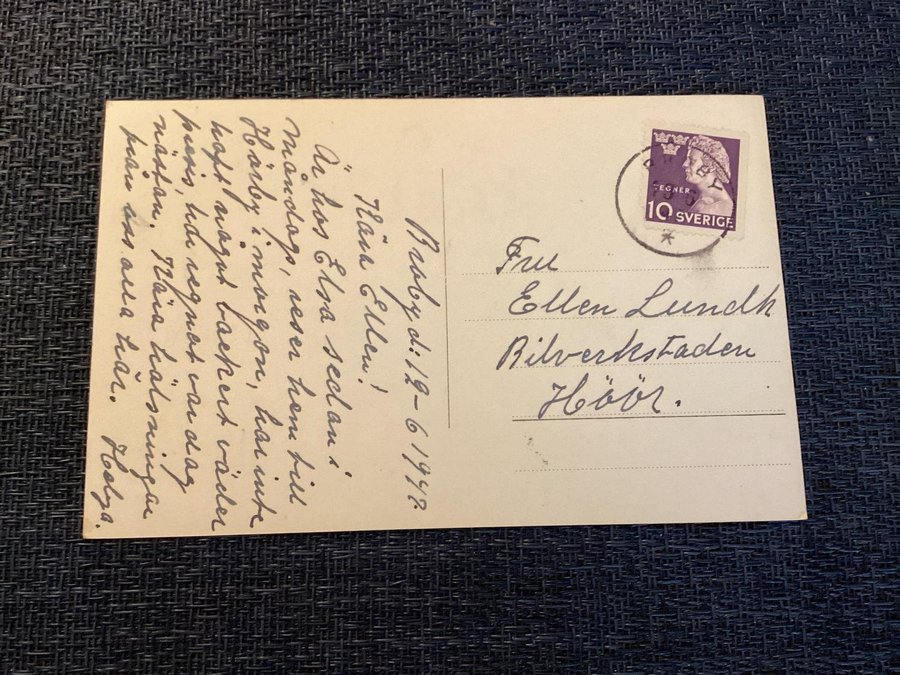 Broby d. 12-6 1947.
Kära Ellen!
Är hos Elsa sedan i
måndag, reser hem till
Hörby i morgon, har inte
haft något vackert väder
precis, har regnat var dag
nästan. Kära hälsningar
från oss alla här. Helga.
BROBY
TEGNER
10 SVERIGE
Fru
Ellen Lundh
Bilverkstaden
Höör.